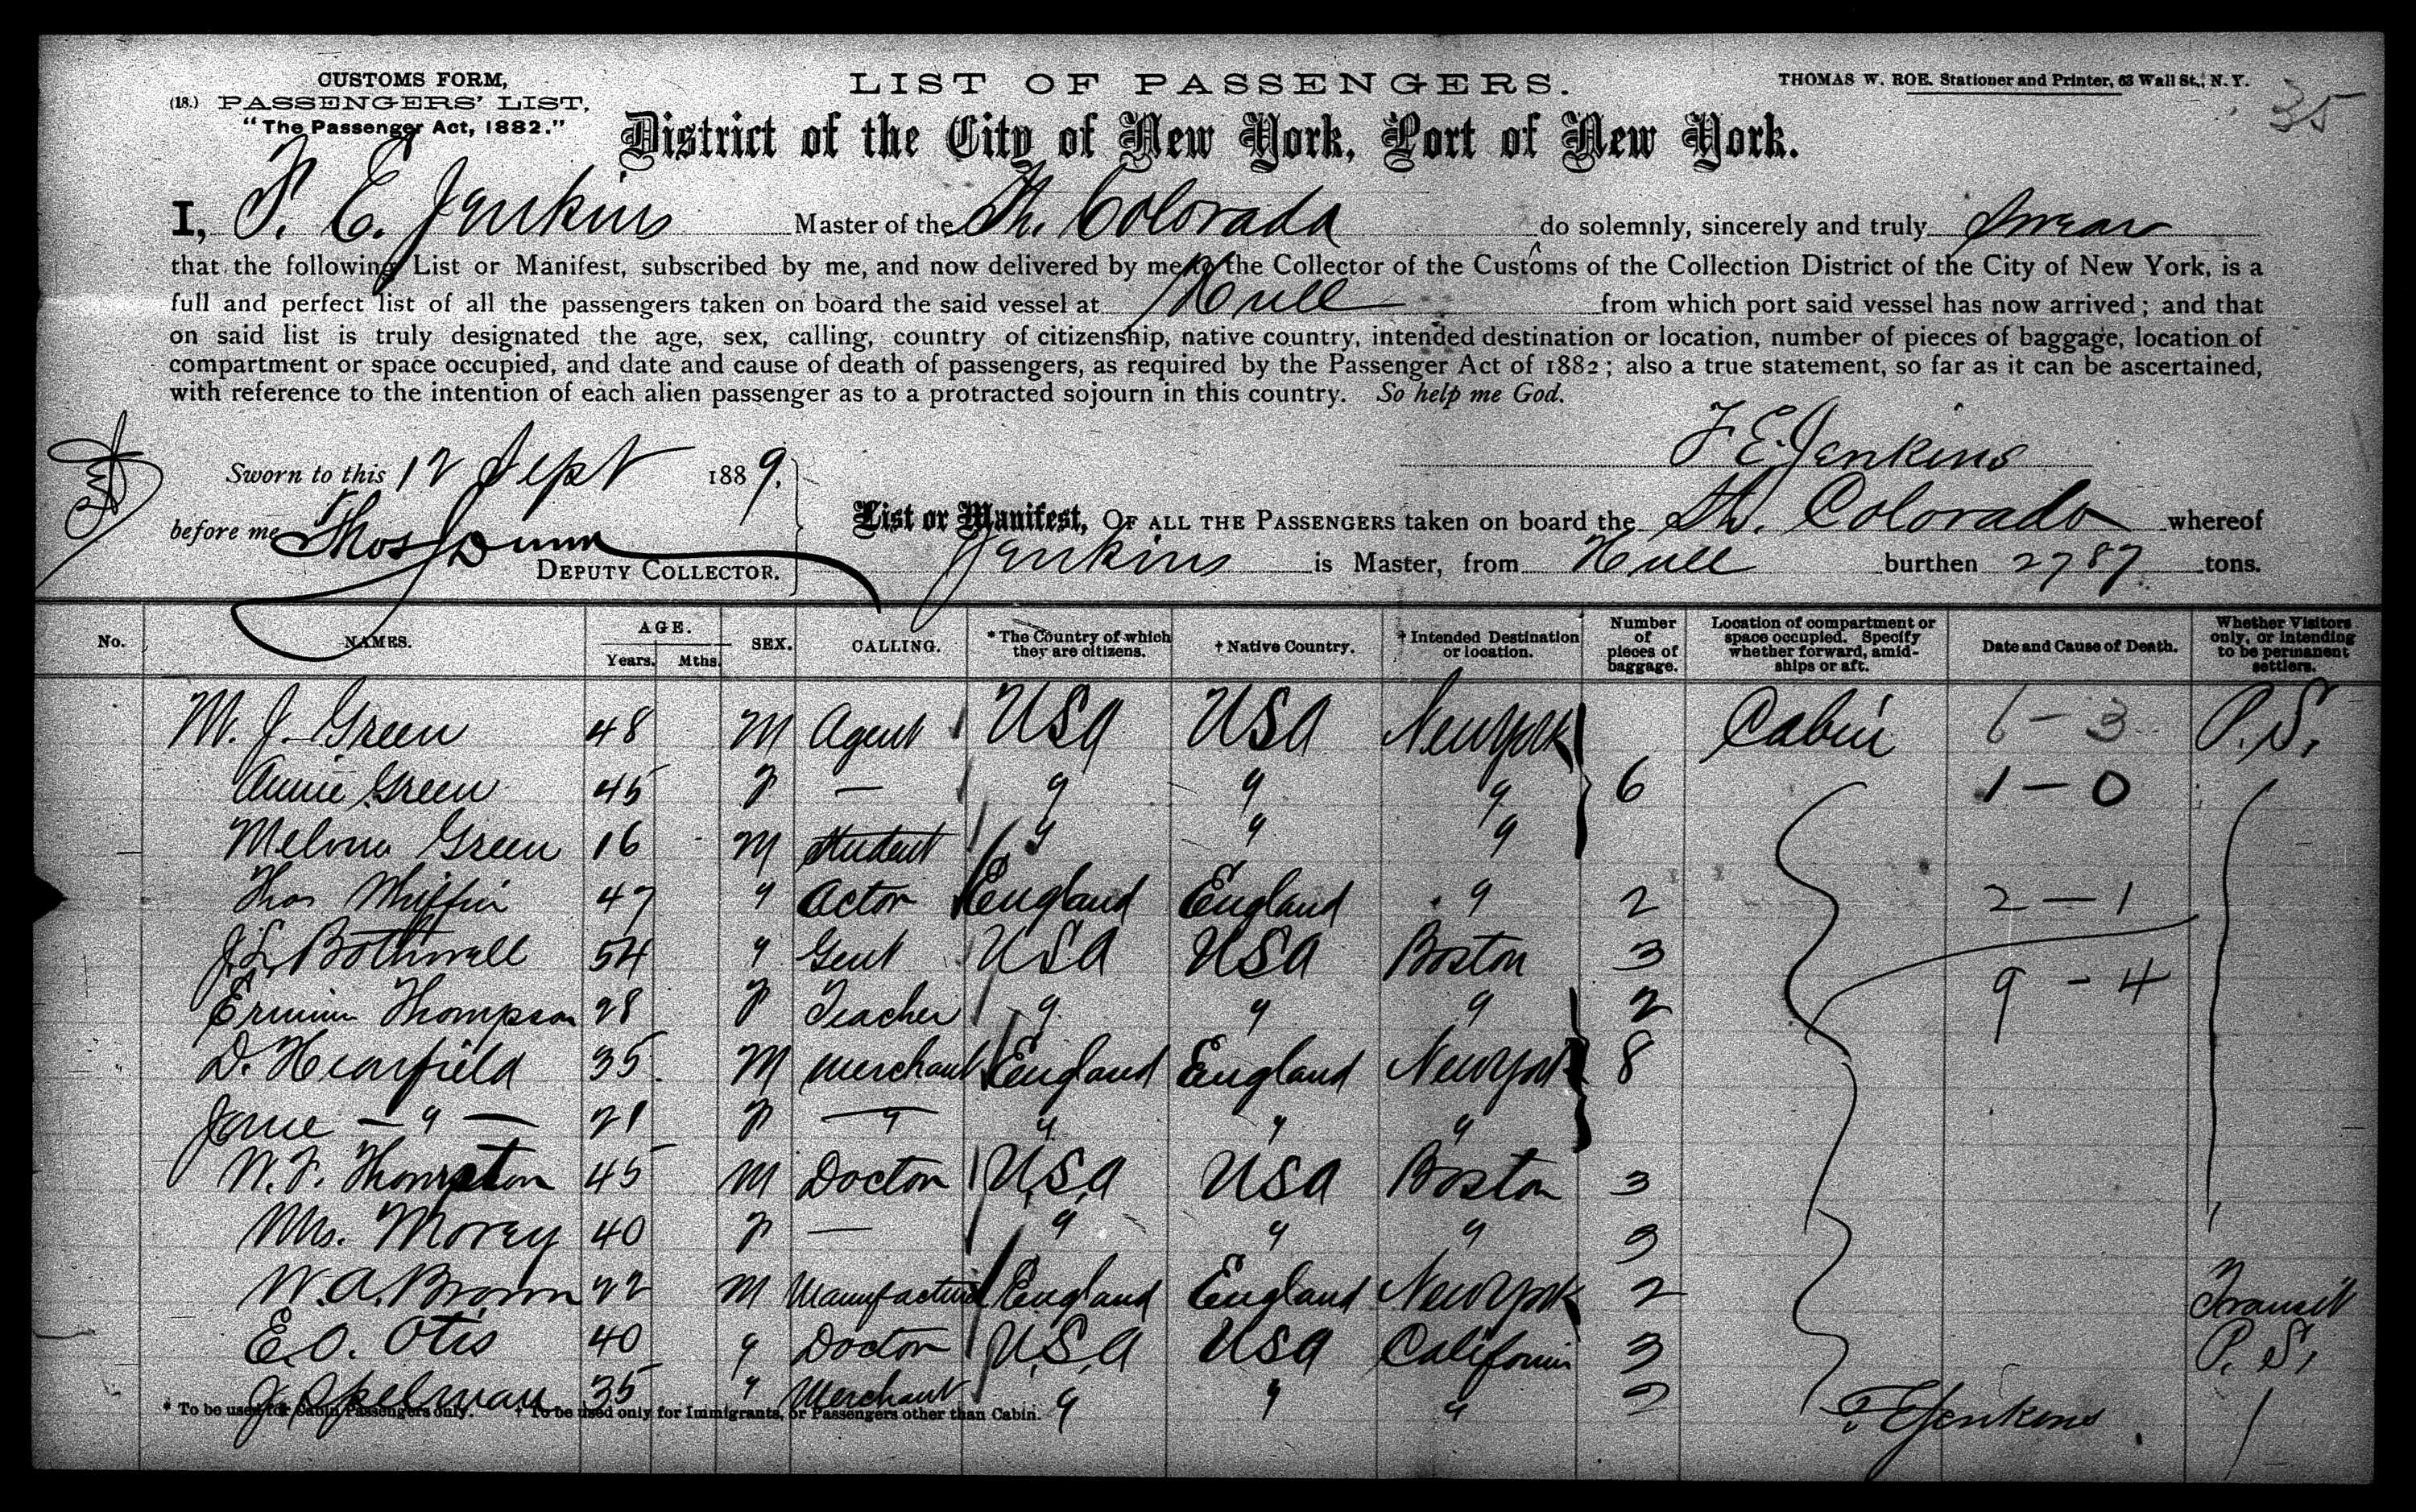 35
CUSTOMS FORM,
(18.) PASSENGERS' LIST,
"The Passenger Act, 1882."
LIST OF PASSENGERS.
THOMAS W. ROE. Stationer and Printer, 63 Wall St., N. Y.
District of the City of New York, Port of New York.
I, F. E. Jenkins Master of the Sh. Colorada do solemnly, sincerely and truly swear
that the following List or Manifest, subscribed by me, and now delivered by me to the Collector of the Customs of the Collection District of the City of New York, is a
full and perfect list of all the passengers taken on board the said vessel at Hull from which port said vessel has now arrived; and that
on said list is truly designated the age, sex, calling, country of citizenship, native country, intended destination or location, number of pieces of baggage, location of
compartment or space occupied, and date and cause of death of passengers, as required by the Passenger Act of 1882; also a true statement, so far as it can be ascertained,
with reference to the intention of each alien passenger as to a protracted sojourn in this country. So help me God.
F E Jenkins
Sworn to this 12 Sept 1889.
before me Thos Dunn
DEPUTY COLLECTOR.
List or Manifest, OF ALL THE PASSENGERS taken on board the Sh. Colorado whereof
Jenkins is Master, from Hull burthen 2787 tons.
No. NAMES. AGE. Years. Mths. SEX. CALLING. * The Country of which they are citizens. † Native Country. † Intended Destination or location. Number of pieces of baggage. Location of compartment or space occupied. Specify whether forward, amidships or aft. Date and Cause of Death. Whether Visitors only, or intending to be permanent settlers.
M. J. Green 48 M Agent USA USA New York Cabin 6 - 3 P. S.
Annie Green 45 F — " " " 6 1 - 0
Melvin Green 16 M Student " " "
Thos 47 " Actor England England " 2 2 - 1
J. L. Bothwell 54 " Gent USA USA Boston 3
Thompson 28 F Teacher " " " 2 9 - 4
D. Hearfield 35 M Merchant England England New York 8
Jane — " — 21 F — " " "
W. F. Thompston 45 M Doctor U.S.A USA Boston 3
Mrs. Morey 40 F — " " " 3
W. A. Brown 22 M Manufacturer England England New York 2 Transit
E. O. Otis 40 " Doctor U.S.A USA California 3 P. S.
J. Spelman 35 " Merchant " " "
* To be used for Cabin Passengers only. † To be used only for Immigrants, or Passengers other than Cabin.
F E Jenkins